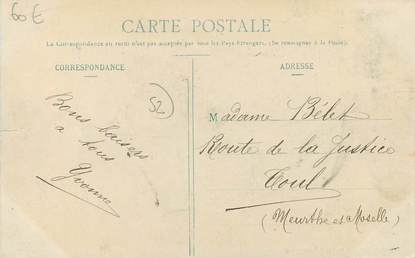 60 €
CARTE POSTALE
La Correspondance au recto n'est pas acceptée par tous les Pays Étrangers. (Se renseigner à la Poste).
CORRESPONDANCE
ADRESSE
52
Bons baisers
a tous
Yvonne
Madame Bélet
Route de la Justice
Toul
(Meurthe et Moselle)